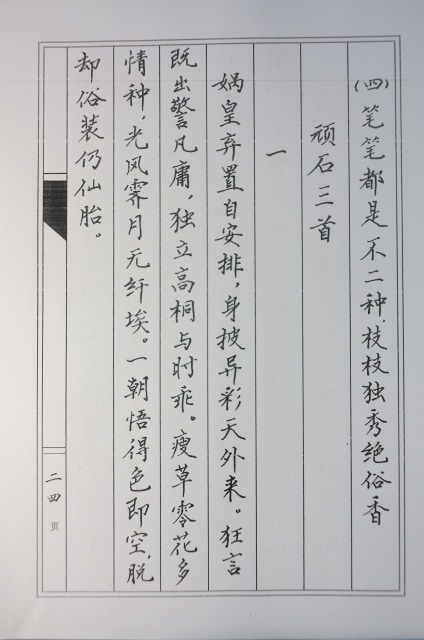 (四)笔笔都是不二种,枝枝独秀绝俗香
顽石三首
一
娲皇弃置自安排,身披异彩天外来。狂言
既出警凡庸,独立高桐与时乖。瘦草零花多
情种,光风霁月无纤埃。一朝悟得色即空,脱
却俗装仍仙胎。
二四页